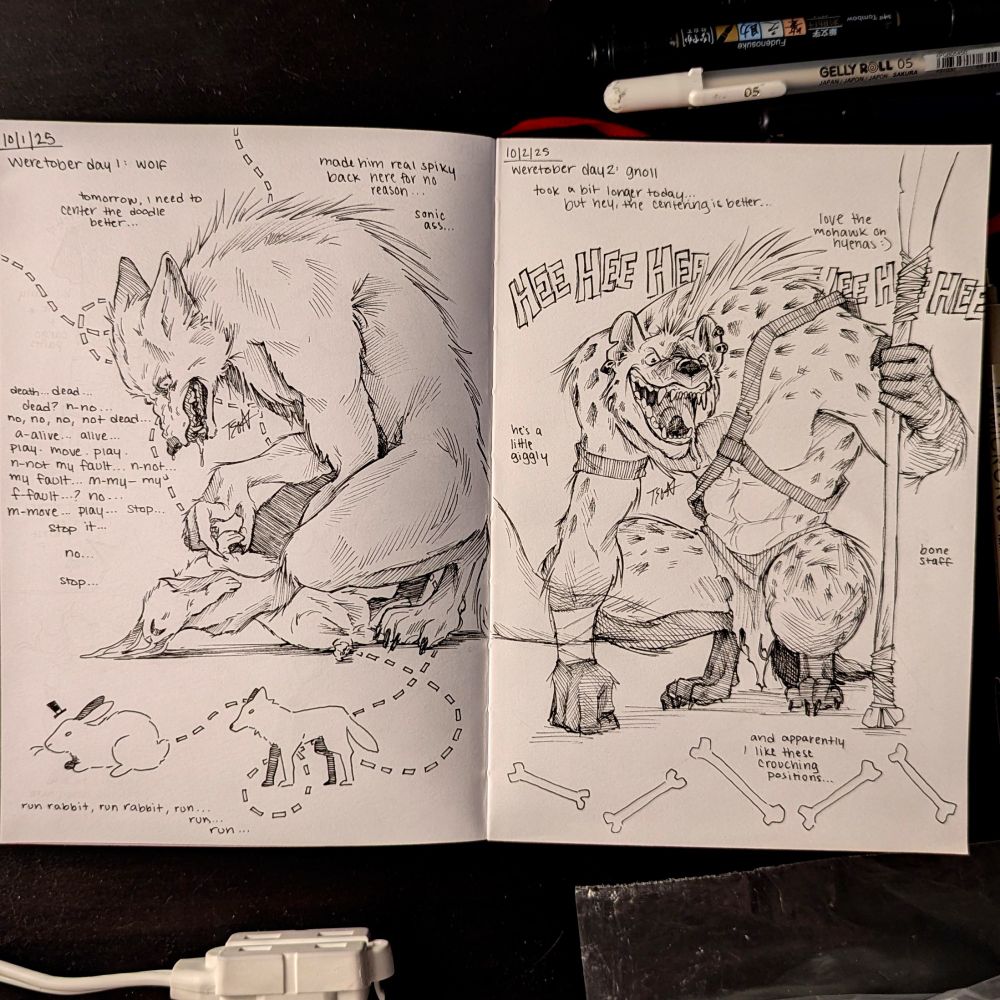 Fudenosuke
Tombow
GELLY ROLL 05
JAPAN / JAPON / JAPÓN SAKURA
05
10/1/25
weretober day 1: wolf
tomorrow, i need to
center the doodle
better...
made him real spiky
back here for no
reason...
sonic
ass...
death... dead...
dead? n-no...
no, no, no, not dead...
a-alive... alive...
play. move. play.
n-not my fault... n-not...
my fault... m-my- my
f-fault...? no...
m-move... play... stop...
stop it...
no...
stop...
run rabbit, run rabbit, run...
run...
run...
10/2/25
weretober day 2: gnoll
took a bit longer today...
but hey, the centering is better...
love the
mohawk on
hyenas :)
HEE HEE HEE
HEE HEE HEE
he's a
little
giggly
bone
staff
and apparently
i like these
crouching
positions...